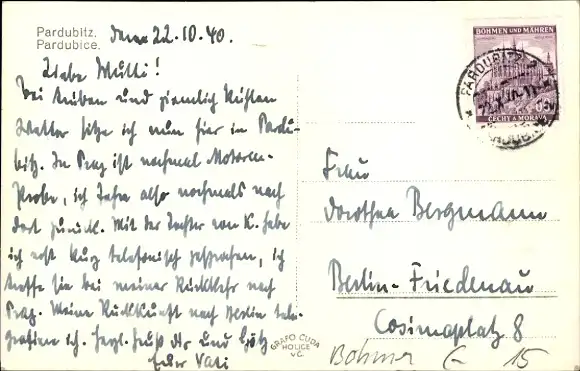 Pardubitz.
Pardubice.
den 22.10.40.
Liebe Mutti!
Bei trüben und ziemlich kühlen
Wetter sitze ich nun hier in Pardu-
bitz. In Prag ist nochmal Motoren-
Probe, ich fahre also nochmals nach
dort zurück. Mit der Tochter von K. habe
ich erst kurz telefonisch gesprochen, ich
treffe sie bei meiner Rückkehr nach
Prag. Meine Rückkunft nach Berlin tele-
grafiere ich. Herzl. Gruß Dir und Götz
Euer Vati
BÖHMEN UND MÄHREN
ČECHY A MORAVA
PARDUBITZ 2
Frau
Dorothea Bergmann
Berlin-Friedenau
Cosimaplatz 8
GRAFO ČUDA
HOLICE
V.Č.
Böhmer
15